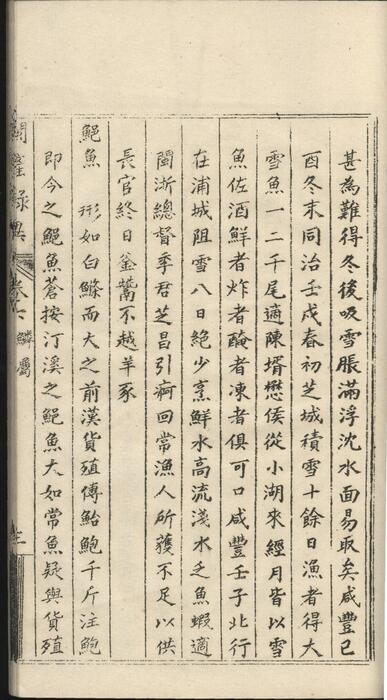 甚為難得冬後吸雪脹滿浮沈水面易取矣咸豐已
酉冬末同治壬戌春初芝城積雪十餘日漁者得大
雪魚一二千尾適陳壻懋侯從小湖來經月皆以雪
魚佐酒鮮者炸者醃者凍者俱可口咸豐壬子北行
在浦城阻雪八日絕少烹鮮水高流淺水乏魚蝦適
閩浙總督季君芝昌引疴回常漁人所獲不足以供
長官終日釜鬵不越羊豕
鮑魚 形如白鰷而大之前漢貨殖傳鮐鮑千斤注鮑
即今之鮑魚蒼按汀溪之鮑魚大如常魚疑與貨殖
閩產錄異 卷六 鱗屬